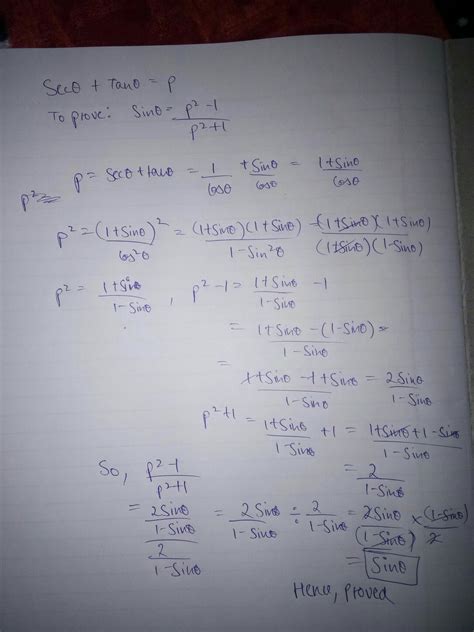 Secθ + Tanθ = p
To prove: Sinθ = (p² - 1)/(p² + 1)
p = secθ + tanθ = 1/cosθ + sinθ/cosθ = (1 + sinθ)/cosθ
p² =
p² = (1 + sinθ)²/cos²θ = (1 + sinθ)(1 + sinθ)/(1 - sin²θ) = (1 + sinθ)(1 + sinθ)/(1 + sinθ)(1 - sinθ)
p² = (1 + sinθ)/(1 - sinθ) , p² - 1 = (1 + sinθ)/(1 - sinθ) - 1
= (1 + sinθ - (1 - sinθ))/(1 - sinθ) =
= (1 + sinθ - 1 + sinθ)/(1 - sinθ) = 2sinθ/(1 - sinθ)
p² + 1 = (1 + sinθ)/(1 - sinθ) + 1 = (1 + sinθ + 1 - sinθ)/(1 - sinθ)
= 2/(1 - sinθ)
So, (p² - 1)/(p² + 1)
= (2sinθ/(1 - sinθ))/(2/(1 - sinθ)) = 2sinθ/(1 - sinθ) ÷ 2/(1 - sinθ) = 2sinθ/(1 - sinθ) × (1 - sinθ)/2
= sinθ
Hence, Proved